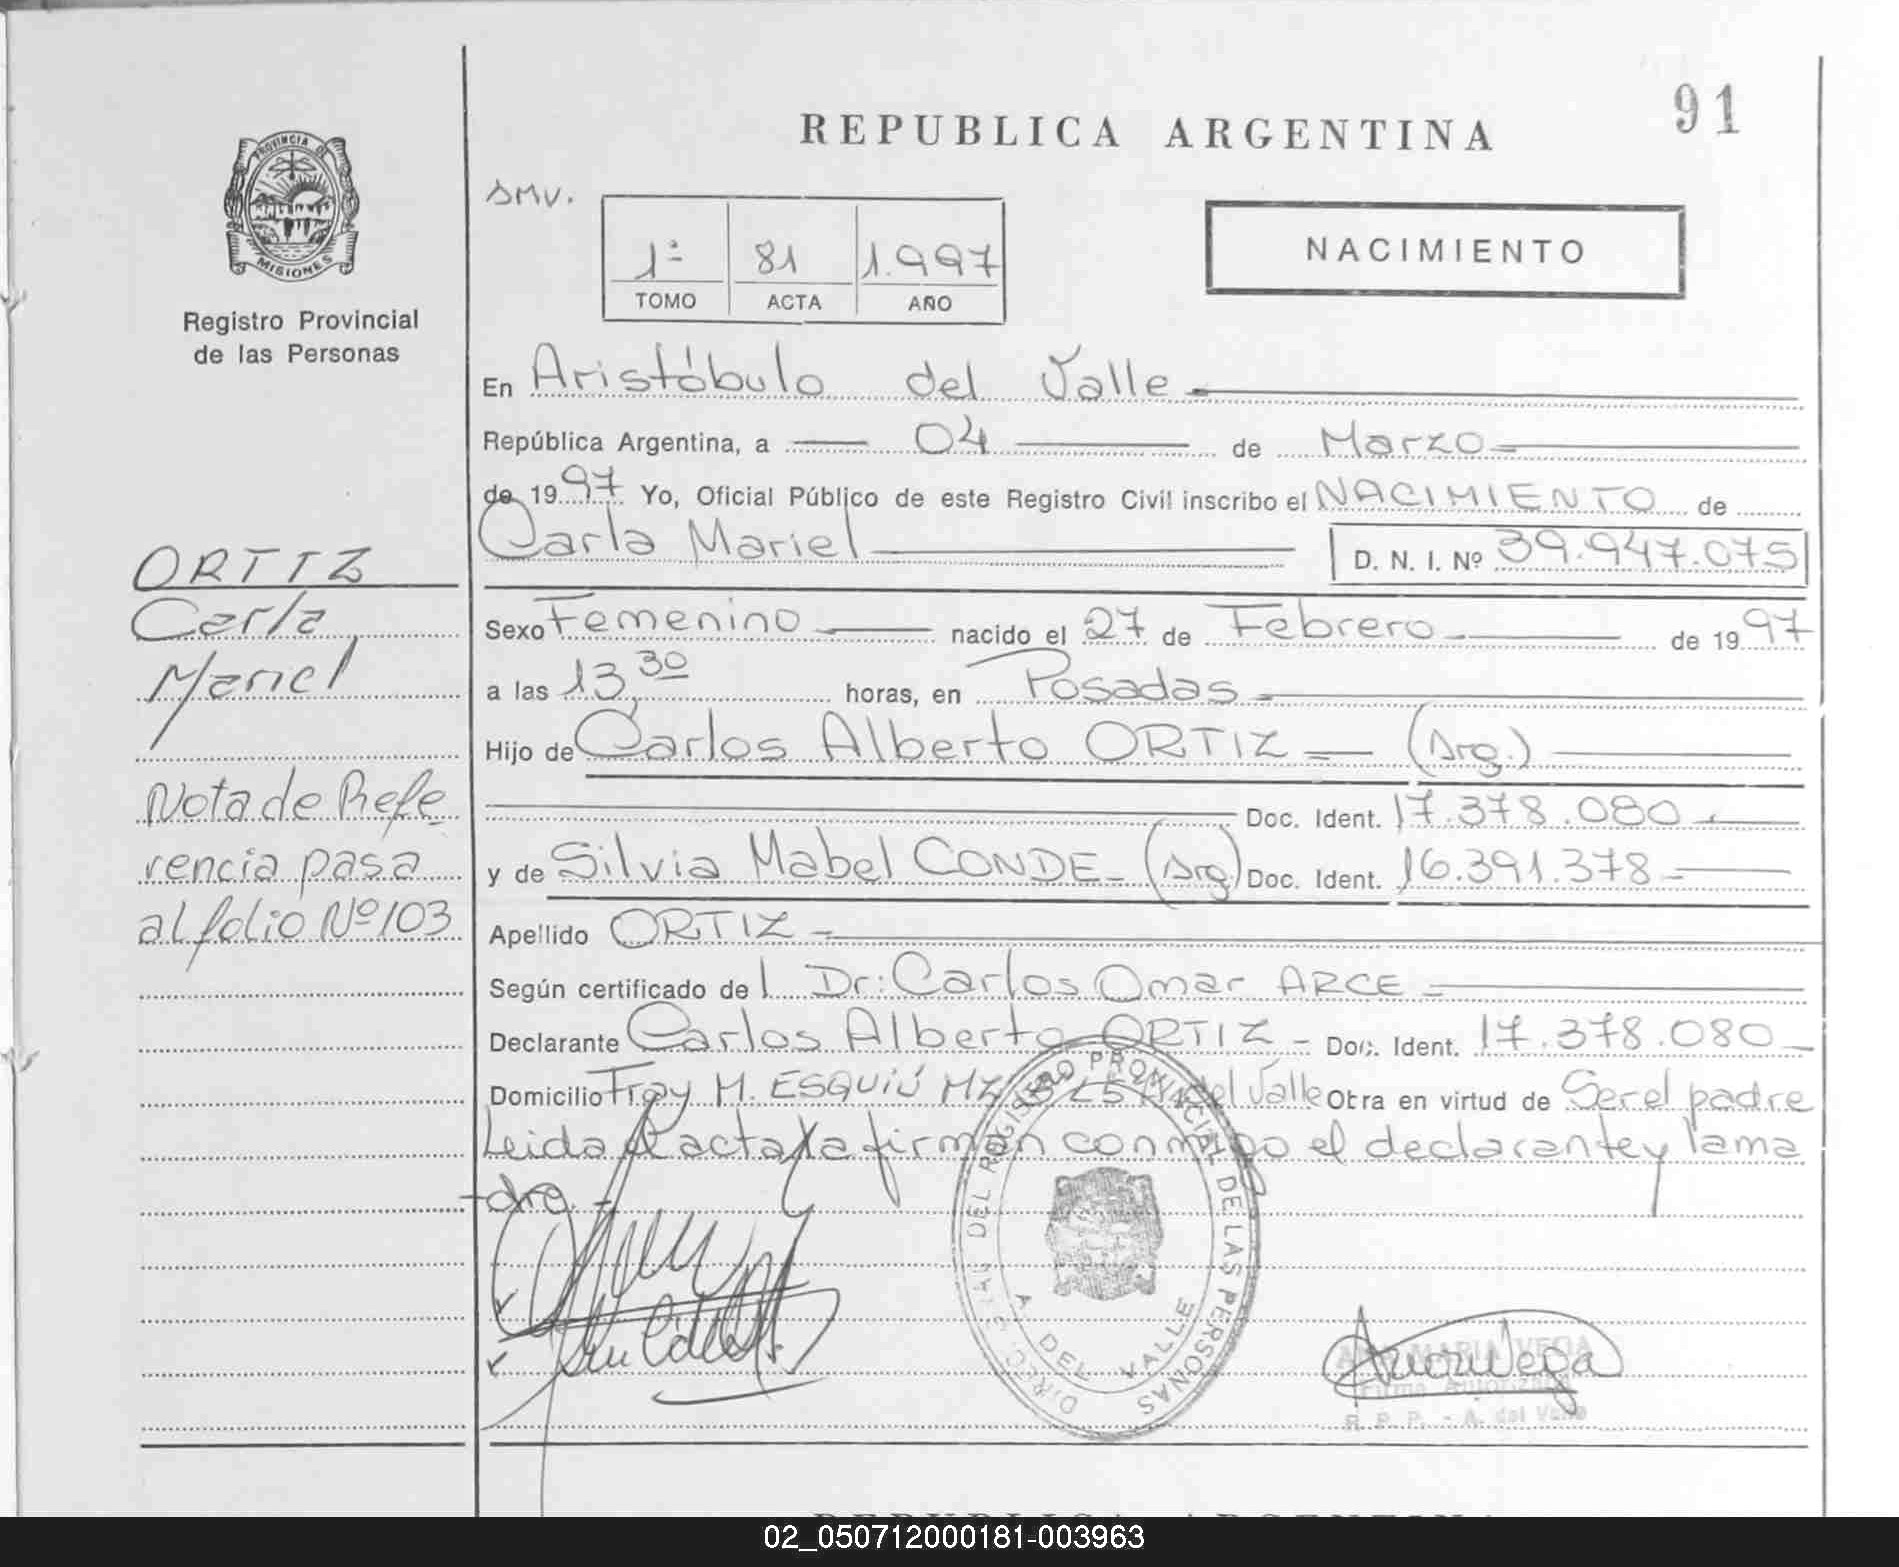 91
REPUBLICA ARGENTINA
PROVINCIA DE
MISIONES
Registro Provincial
de las Personas
SMV.
1º 81 1.997
TOMO ACTA AÑO
NACIMIENTO
En Aristóbulo del Valle
República Argentina, a 04 de Marzo
de 1997 Yo, Oficial Público de este Registro Civil inscribo el NACIMIENTO de
Carla Mariel D. N. I. Nº 39.947.075
Sexo Femenino nacido el 27 de Febrero de 1997
a las 13,30 horas, en Posadas
Hijo de Carlos Alberto ORTIZ (Arg.)
Doc. Ident. 17.378.080
y de Silvia Mabel CONDE (Arg) Doc. Ident. 16.391.378
Apellido ORTIZ
Según certificado de l Dr: Carlos Omar ARCE
Declarante Carlos Alberto ORTIZ - Doc. Ident. 17.378.080
Domicilio Fray M. ESQUIÚ MZ del Valle Otra en virtud de Ser el padre
Leida el acta la firman conmigo el declarante y la ma
dre.
ORTIZ
Carla
Mariel
Nota de Refe
rencia pasa
al folio Nº 103
DEL REGISTRO PROVINCIAL DE LAS PERSONAS
A. DEL VALLE
ANA MARIA VEGA
Firma Autorizada
R. P. P. - A. del Valle
02_050712000181-003963